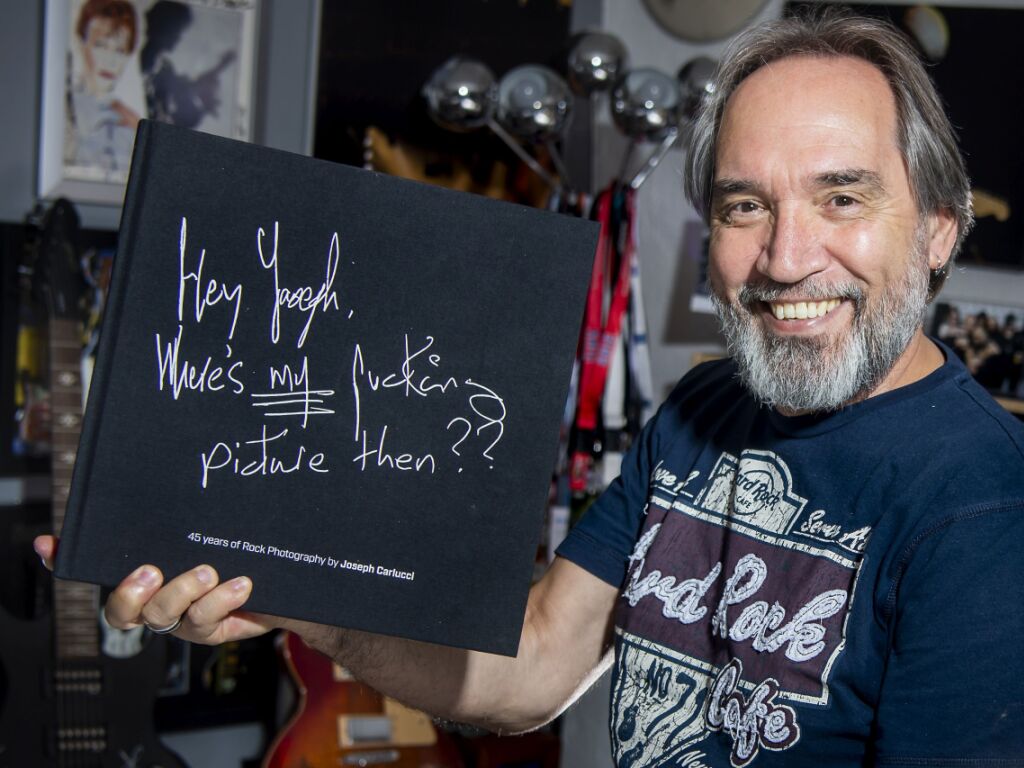 Hey Yoseph,
Where's my fucking
picture then??
45 years of Rock Photography by Joseph Carlucci
Hard Rock
CAFE
Hard Rock
Cafe
NO 7